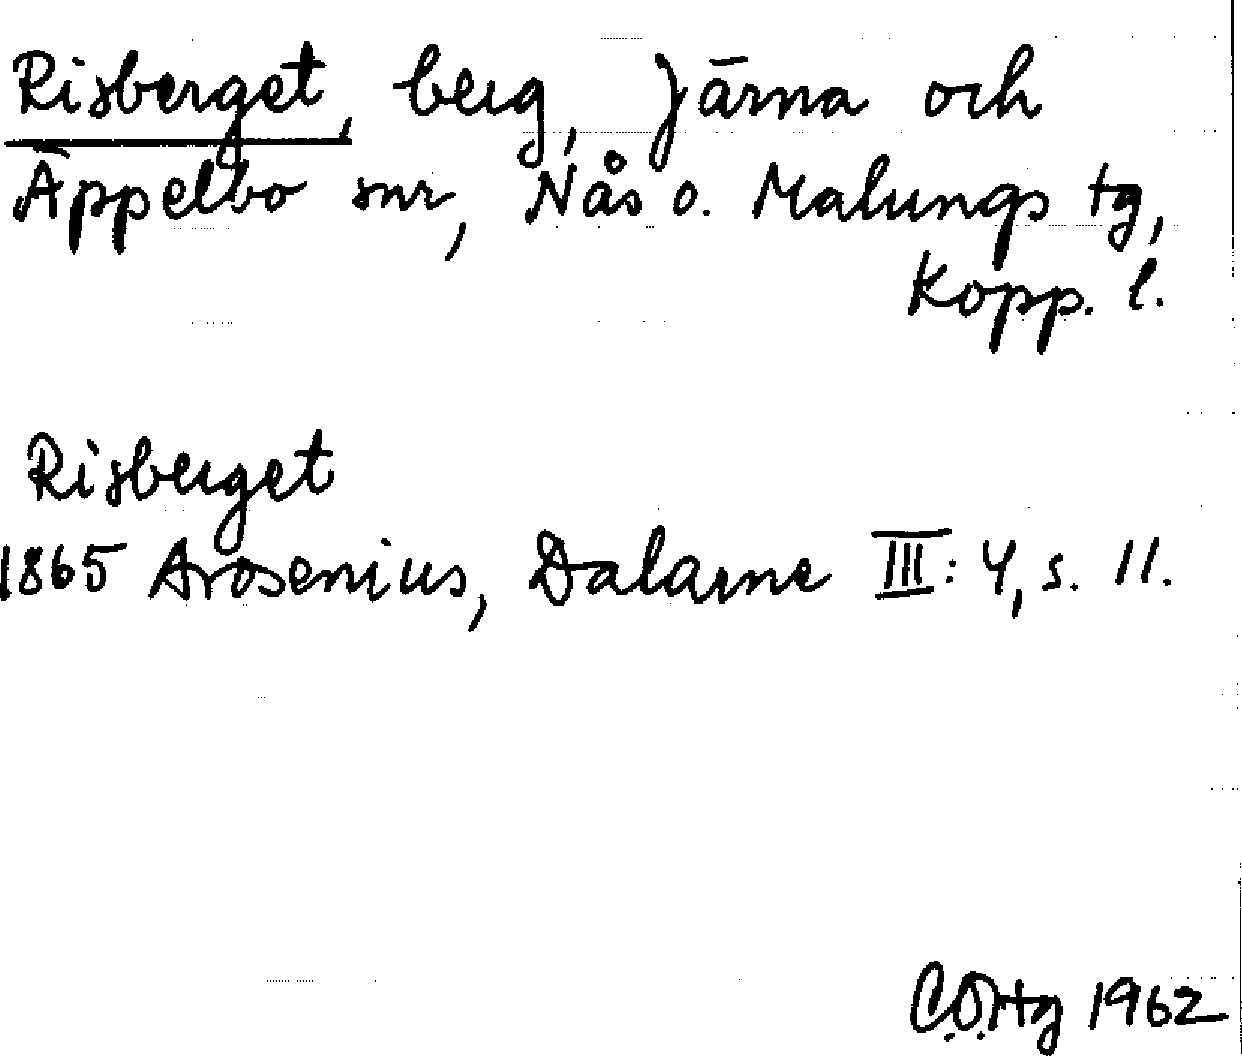 Risberget, berg, Järna och
Äppelbo snr, Nås o. Malungs tg,
Kopp. l.
Risberget
1865 Arosenius, Dalarne III: 4, s. 11.
1962